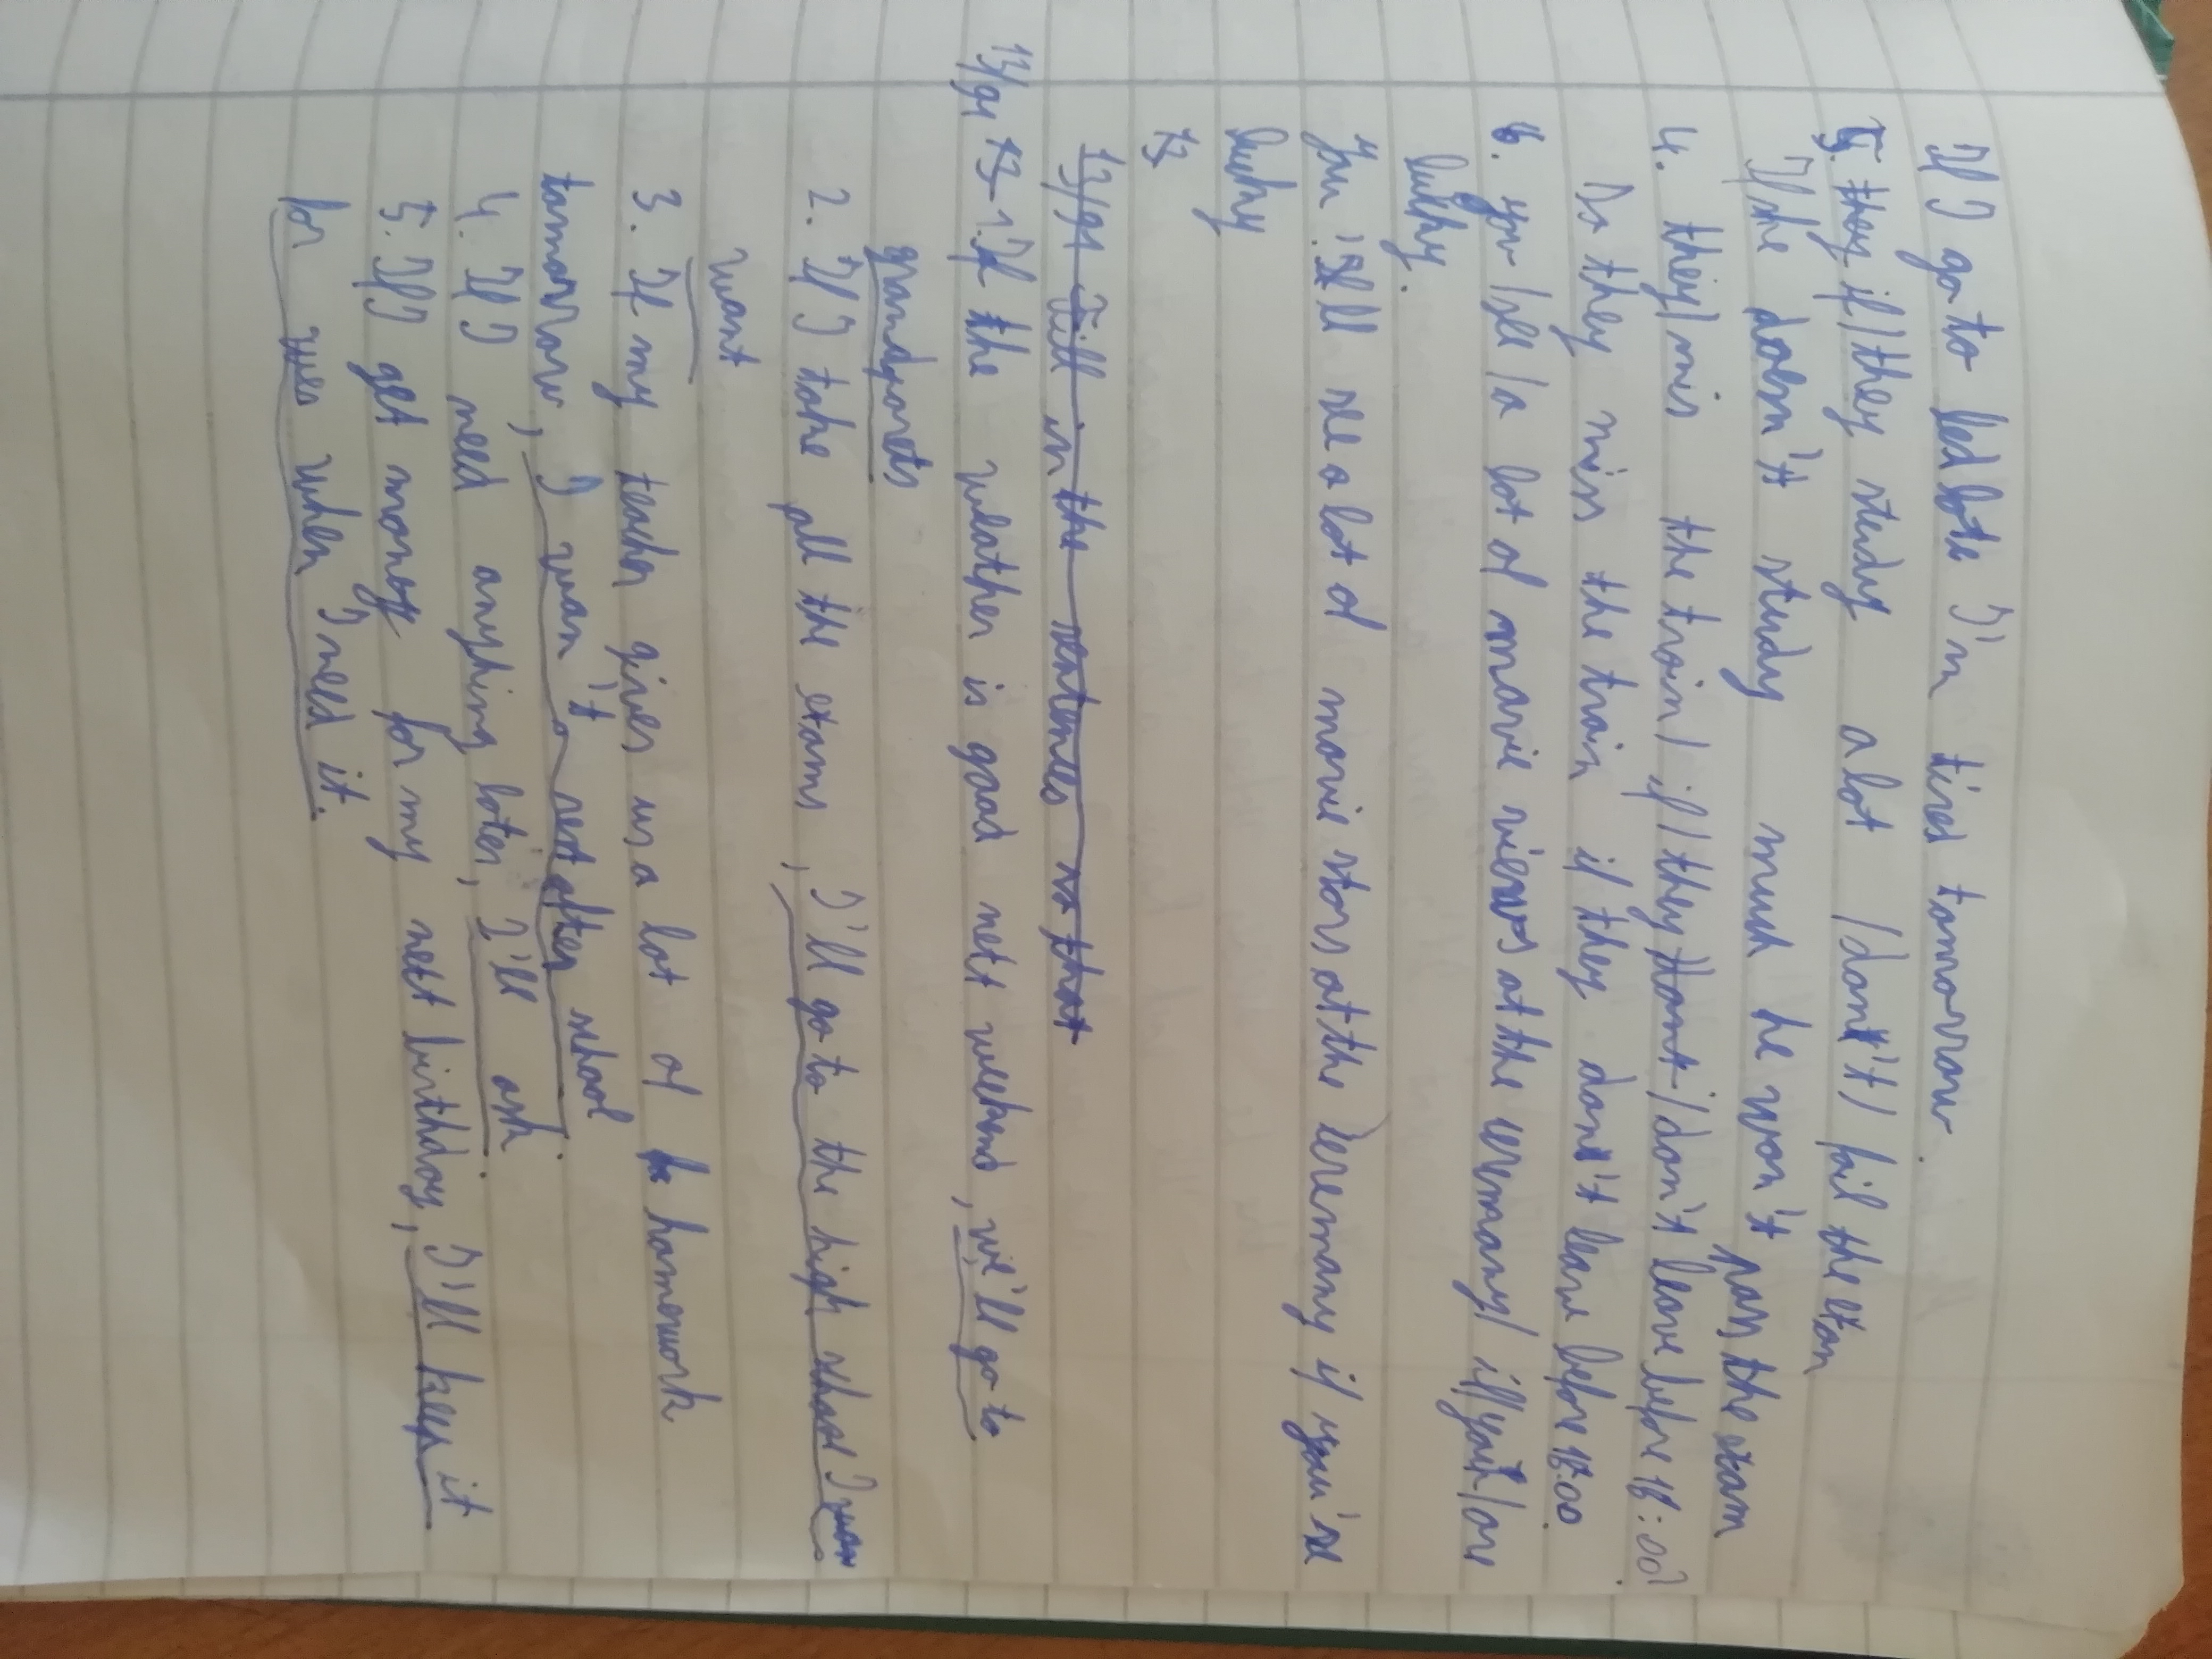 If I go to bed late I'm tired tomorrow.
5. they if/they study a lot /don't/ fail the exam
If he doesn't study much he won't pass the exam
4. they/mis the train/ if/they dont/don't leave before 18:00?
Do they miss the train if they don't leave before 18:00.
6. you/see/a lot of movie stars at the ceremany/ if/you/are
lucky.
You'll see a lot of movie stars at the ceremany if you're
lucky
13
13/91 Fill in the sentences so that
13/91 13 1. If the weather is good next weekend, we'll go to
grandparets
2. If I take all the exams, I'll go to the high school I wan
want
3. If my teacher gives us a lot of homework
tomorrow, I wan't rest after school
4. If I need anything later, I'll ask.
5. If I get money for my next birthday, I'll keep it
for when I need it.